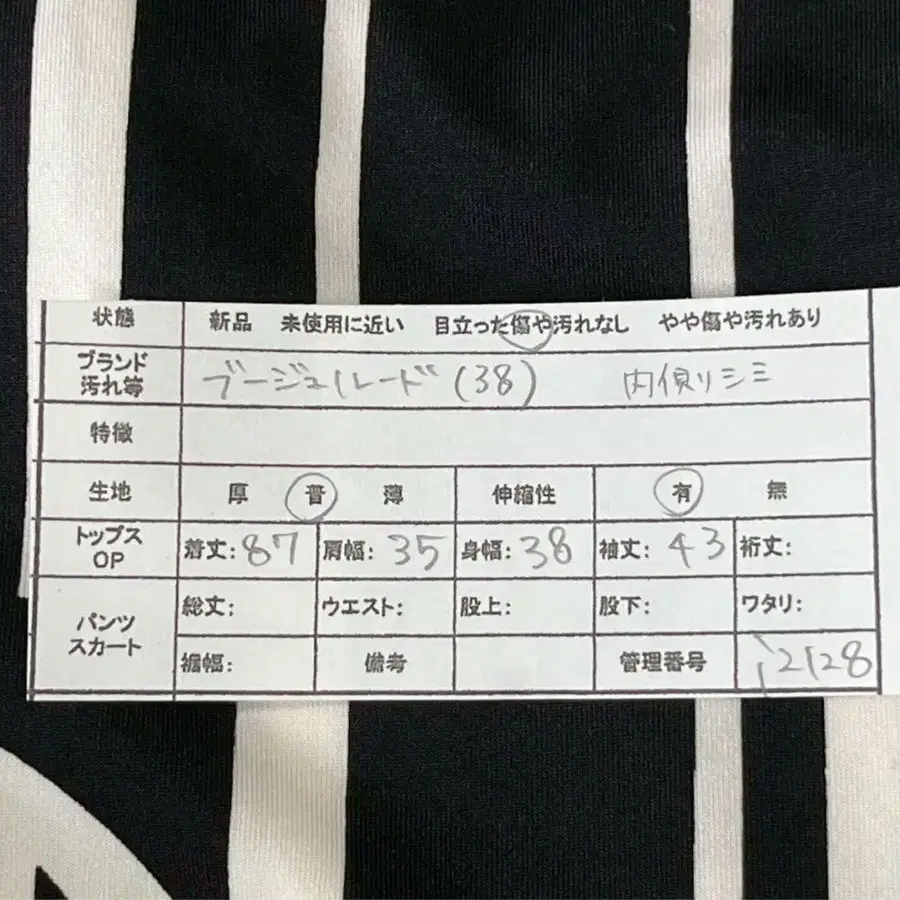 状態 新品 未使用に近い 目立った傷や汚れなし やや傷や汚れあり
ブランド 汚れ等 ブージュルード (38) 内側シミ
特徴
生地 厚 普 薄 伸縮性 有 無
トップス OP 着丈: 87 肩幅: 35 身幅: 38 袖丈: 43 裄丈:
パンツ スカート 総丈: ウエスト: 股上: 股下: ワタリ:
裾幅: 備考 管理番号 i2128